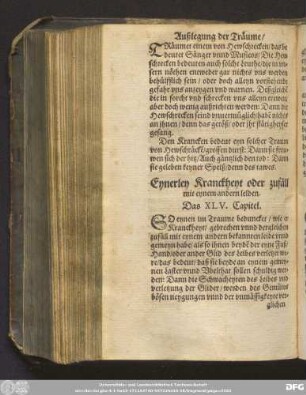 Außlegung der Träume/
TRäumet einem von Hewschrecken/ das be
deutet Sänger vnnd Musicos: Die Hew
schrecken bedeuten auch solche leuthe/ die in vn
sern nöthen entweder gar nichts vns werden
behülfflich sein/ oder doch alleyn vorstehende
gefahr vns anzeygen vnd warnen. Deßgleichẽ
die in forcht vnd schrecken vns alleyn etwas/
aber doch wenig außrichten werden: Dann die
Hewschrecken seind vnuermüglich/ habẽ nichts
an ihnen/ denn das geröß/ oder ihr stätigbeyser
gesang.
Den Krancken bedeut eyn solcher Traum
von Hewschreckẽ/ grossen durst: Dann sie freu
wen sich der hitz/ Auch gänzlich den tod: Dann
sie geleben keyner Speiß/ denn des tawes.
Eynerley Kranckheyt oder zufäll
mit eynem andern leiden.
Das XLV. Capitel.
SO eynen im Traume beduncket/ wie er
Kranckheyt/ gebrechen vnnd dergleichen
zufäll mit eynem andern bekannten leide vnd
gemeyn habe: als so ihnen beyde der eyne Fuß/
Hand/ oder ander Glid des leibes verletzt we-
re/ das bedeut/ daß sie beyde an eynem gemey-
nen laster vnnd Vbelthat sollen schuldig wer-
den: Dann die Schwacheyten des leibes vnd
verletzung der Glider/ werden des Gemüts
bösen neygungen vnnd der vnmässigkeyt ver-
glichen